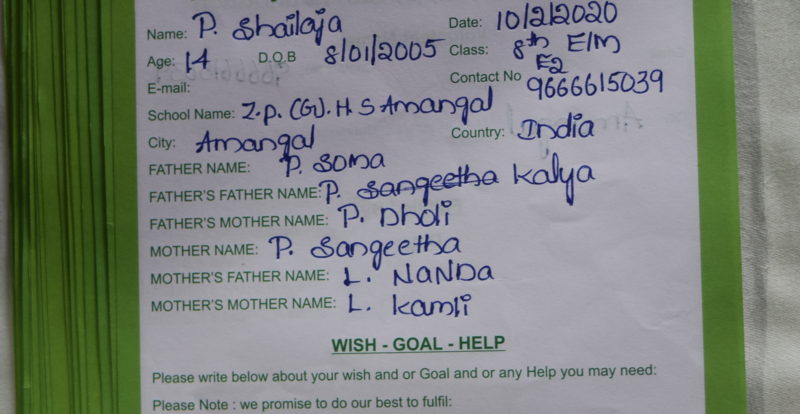 Name: P. Shailaja Date: 10/2/2020
Age: 14 D.O.B 8/01/2005 Class: 8th E/M
E2
E-mail: Contact No 9666615039
School Name: Z.p. (G). H. S Amangal
City: Amangal Country: India
FATHER NAME: P. Soma
FATHER'S FATHER NAME: P. Sangeetha Kalya
FATHER'S MOTHER NAME: P. Dholi
MOTHER NAME: P. Sangeetha
MOTHER'S FATHER NAME: L. NANDA
MOTHER'S MOTHER NAME: L. Kamli
WISH - GOAL - HELP
Please write below about your wish and or Goal and or any Help you may need:
Please Note : we promise to do our best to fulfil: